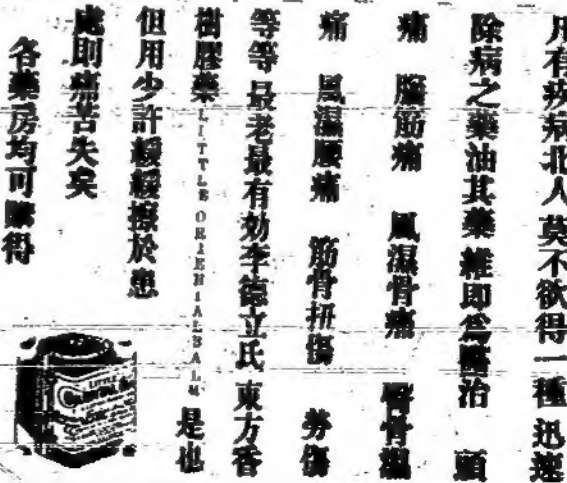 凡有疾病北人莫不欲得一種迅速
除病之藥油其藥維即爲醫治 頭
痛 腦筋痛 風濕骨痛 髀骨濕
痛 風濕腰痛 筋骨扭傷 勞傷
等等 最老最有効李德立氏 東方香
樹膠藥 LITTLE ORIENTAL BALM 是也
但用少許緩緩擦於患
處則痛苦失矣
各藥房均可購得